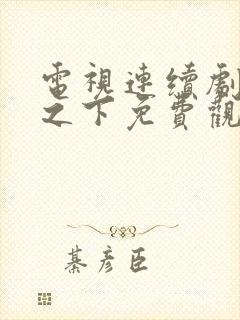 電視連續劇
之下免費觀
綦彥臣